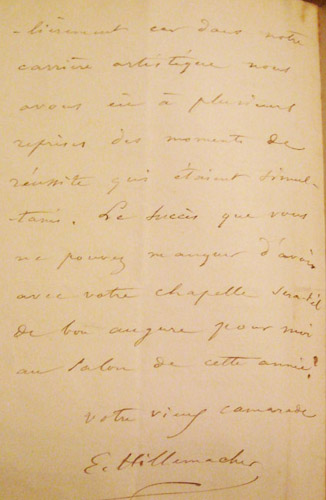 -lièrement car dans notre
carrière artistique nous
avons eû à plusieurs
reprises des moments de
réussite qui étaient simul-
-tanés. Le succès que vous
ne pouvez manquer d'avoir
avec votre chapelle sera-t'il
de bon augure pour moi
au Salon de cette année?
Votre vieux camarade
E. Hillemacher